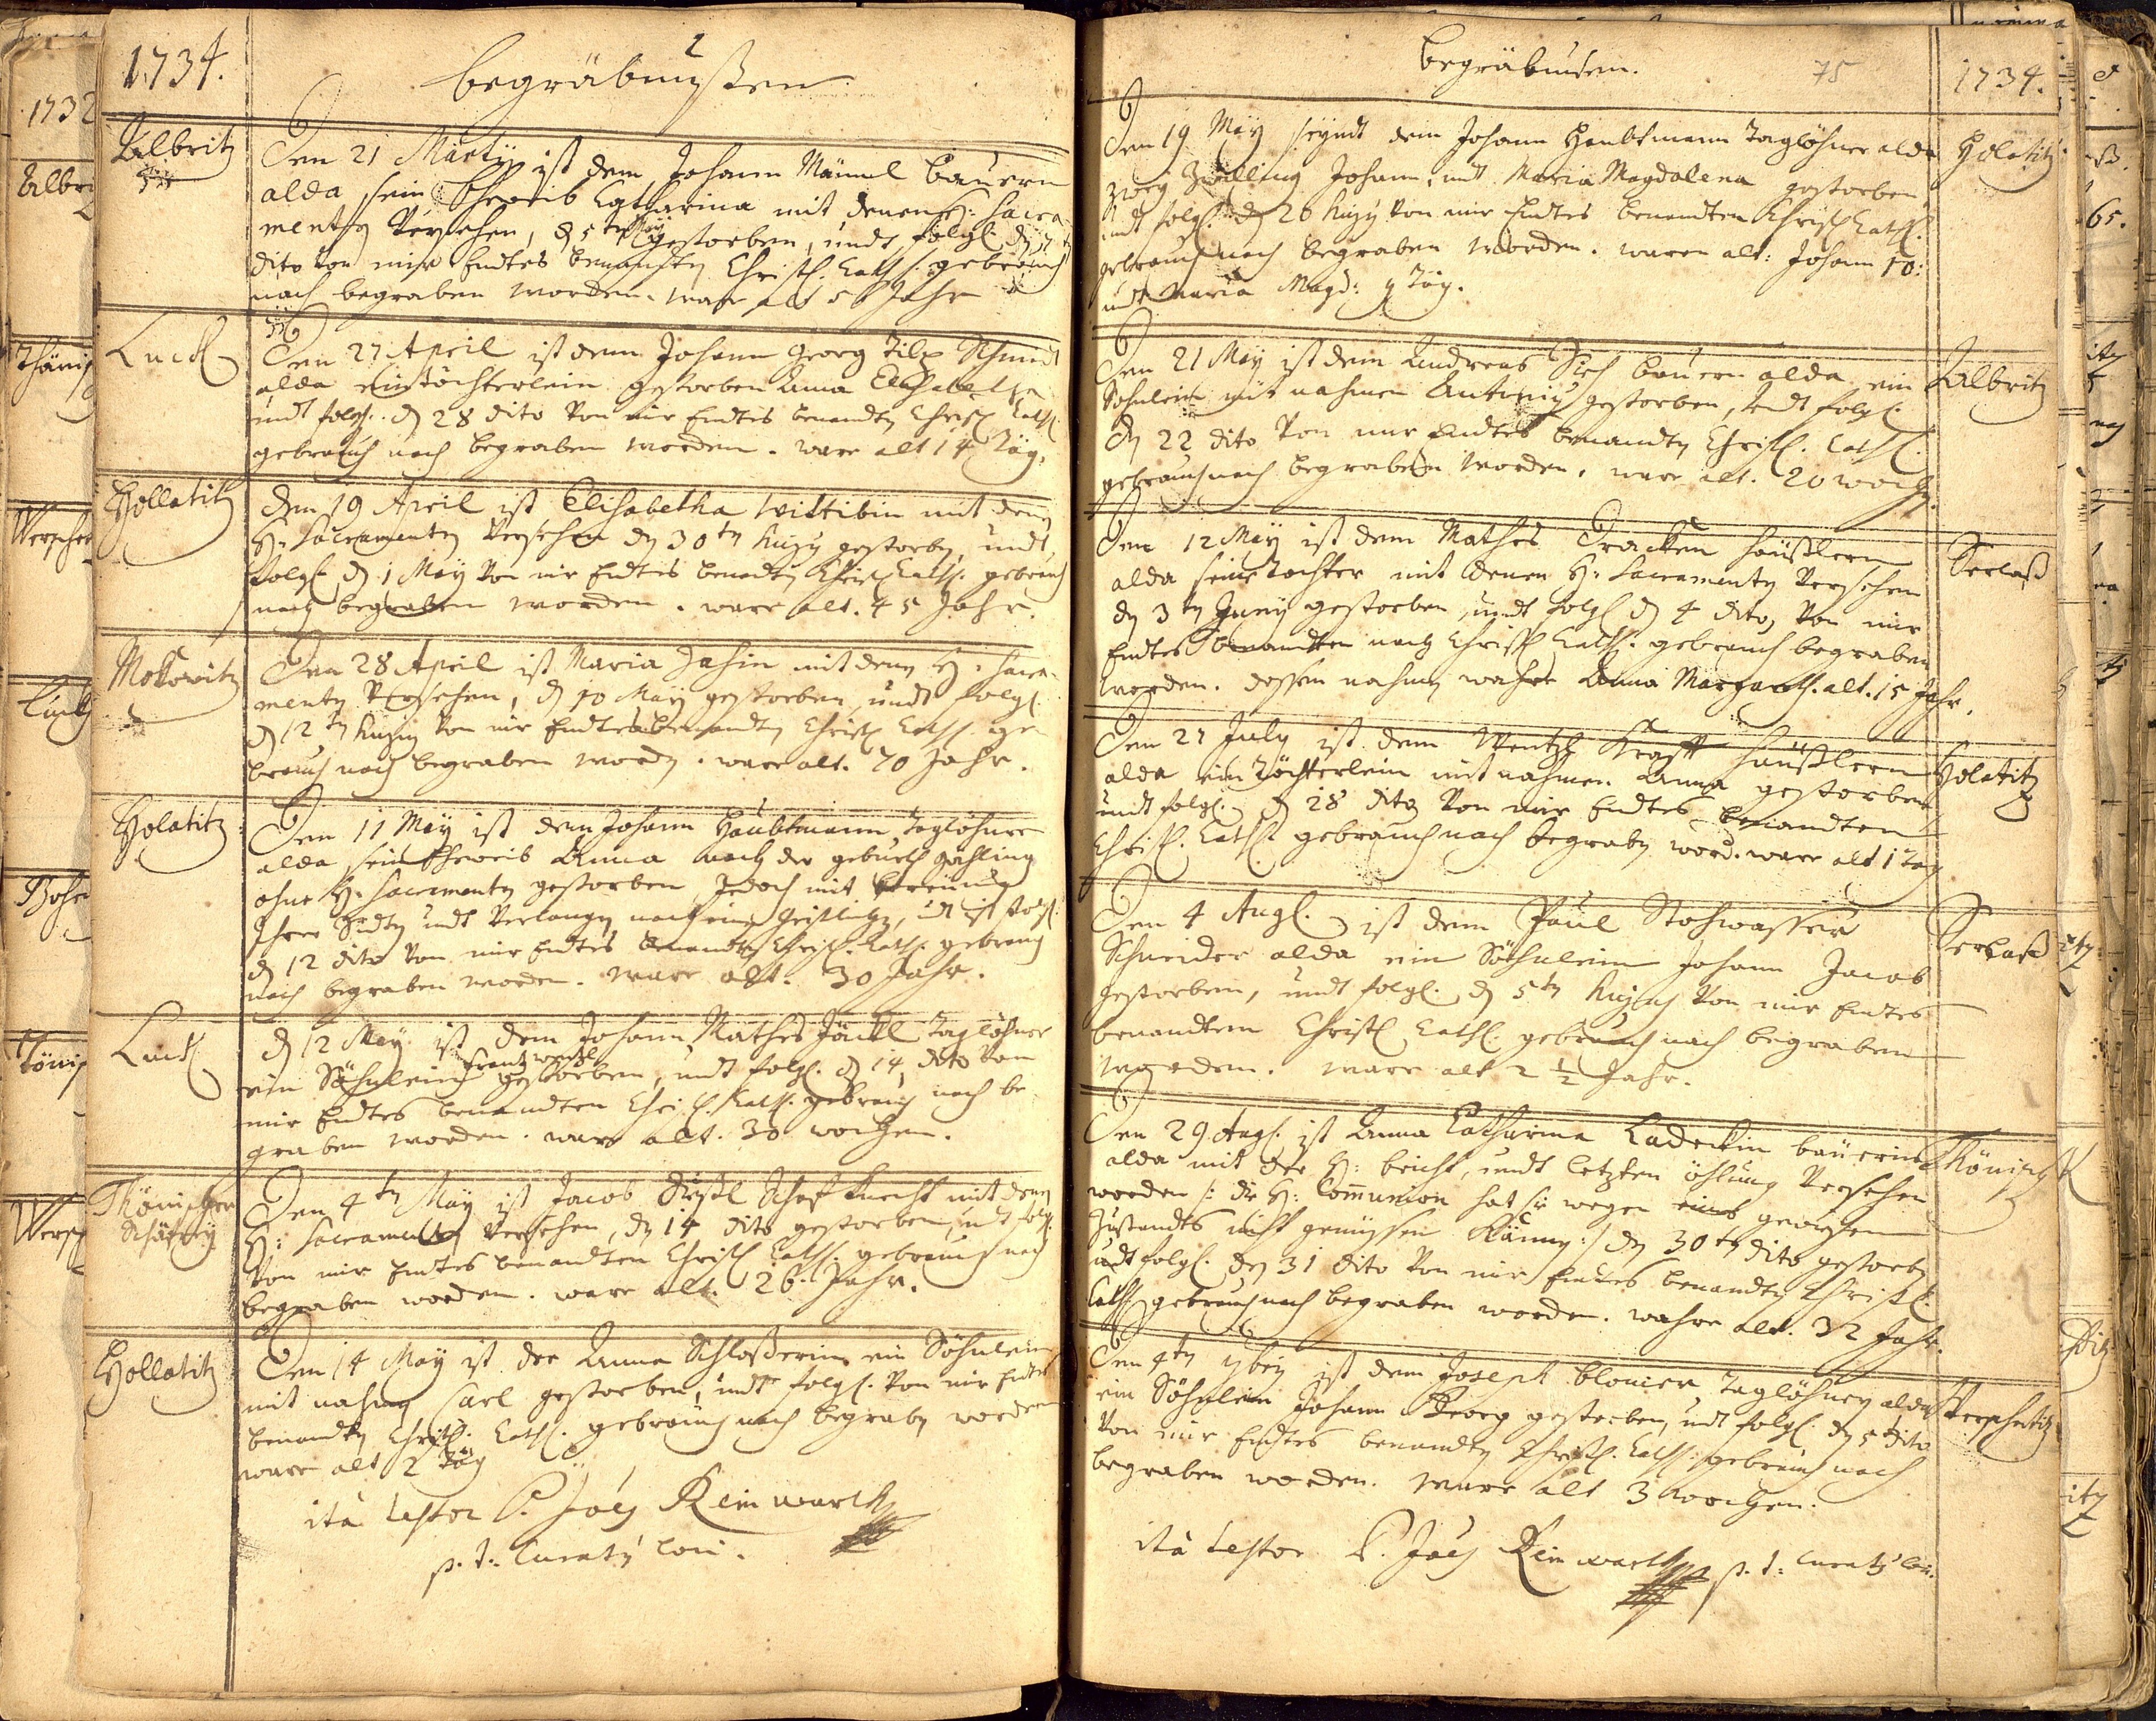 1734.
begräbnußen
Ulbritz
Den 21 Martÿ ist dem Johann Männl Bauern
alda sein Eheweib Catharina mit denen H: Sacra-
menty versehen, dy 5ten Maÿ gestorben, undt folgl: dy 7t
dito von mir Endtes benanten Christl. Cath. gebrauch
nach begraben worden. ware alt Jahr
Luck
Den 27 April ist dem Johann Georg Tilp Schmidt
alda ein Töchterlein gestorben Anna Elisabetha
undt folgl. dy 28 dito von mir Endtes benandty Christl Cath
gebrauch nach begraben worden. ware alt 14 Täg.
Hollatitz
Den 19 April ist Elisabetha wittibin mit deny
H: Sacramenty versehen dy 30ty hujy gestorby, undt
folgl. dy 1 Maÿ von mir Endtes benandty Christl Cath: gebrauch
nach begraben worden. ware alt. 45 Jahr.
Mokowitz
Den 28 April ist Maria Jahin mit deny H: Sacra-
menty versehen, dy 10 Maÿ gestorben, undt folgl.
dy 12ty hujy von mir Endtes benandty Christl Cath. ge
brauch nach begraben wordy. ware alt. 70 Jahr.
Holatitz
Den 11 Maÿ ist dem Johann Haubtmann Taglöhner
alda sein Eheweib Anna nach der geburth gahling
ohne H: Sacramenty gestorben, Jedoch mit bereüung
Ihrer Sündty undt verlangen nach einy Geistlichy, undt ist folgl.
dy 12 dito von mir Endtes benandty Christl. Cath. gebrauch
nach begraben worden. ware alt. 30 Jahr.
Luck
dy 12 Maÿ ist dem Johann Mathes Jäckl Taglöhner
ein Söhnlein Frantz wentzl gestorben, undt folgl. dy 14 dito von
mir Endtes benandten Christl. Cath. gebrauch nach be
graben worden. ware alt. 30 wochen.
Thönischer
Schäffereÿ
Den 4ty Maÿ ist Jacob Schaf Knecht mit deny
H: Sacramenty versehen, dy 14 dito gestorben, undt folgl.
von mir Endtes benandten Christl Cath. gebrauch nach
begraben worden. ware alt. 26. Jahr.
Hollatitz
Den 14 Maÿ ist der Anna Schloßerin ein Söhnlein
mit nahmy Carl gestorben, undt folgl. von mir Endtes
benandty Christl. Cath. gebrauch nach begraby worden
ware alt 2 Täg
ità testor P. Joẽs Reinwarth
p. t. Curaty loci.
begräbnusen.
75
1734.
Den 19 Maÿ seyndt dem Johann Haubtmann Taglöhner alda
Holatitz
zweÿ Zwilling Johann, undt Maria Magdalena gestorben
undt folgl. dy 20 hujy von mir Endtes benandten Christl Cath.
gebrauch nach begraben worden. waren alt: Johann 10:
undt Maria Magd: 9 Täg.
Den 21 Maÿ ist dem Andreas Bauern alda ein
Ulbritz
Söhnlein mit nahmen Antoniy gestorben, undt folgl.
dy 22 dito von mir Endtes benandty Christl. Cath.
gebrauch nach begraben worden. ware alt. 20 wochy.
Den 12 Maÿ ist dem Mathes häußlern
Serlaß
alda seine Tochter mit denen H: Sacramenty versehen
dy 3ty Junÿ gestorben, undt folgl dy 4 dito, von mir
Endtes benandten nach Christl Cath. gebrauch begraben
worden. dessen nahmy wahre Anna Margareth. alt. 15 Jahr.
Den 27 July ist dem Wentzl Krafft häußlern
Holatitz
alda ein Töchterlein mit nahmen Anna gestorben
undt folgl. dy 28 dito von mir Endtes benandten
Christl. Cath. gebrauch nach begraby word. ware alt 1 Tag
Den 4 Augl. ist dem Paul Stohwasser
Serlaß
Schneider alda ein Söhnlein Johann Jacob
gestorben, undt folgl. dy 5ty hujuj von mir Endtes
benandtem Christl Cathl. gebrauch nach begraben
worden. ware alt 2 ½ Jahr.
Den 29 Augl. ist Anna Catharina Laderkin bäuerin
Thönisch
alda mit der H: beicht, undt letzten öhlung versehen
worden /: die H: Communion hat sie wegen eines gewissen
Zustandts nicht genüssen Könny :/ dy 30ty dito gestorby
undt folgl. dy 31 dito von mir Endtes benandty Christl.
Cathl gebrauch nach begraben worden. wahre alt. 32 Jahr.
Den 4ty 7bris ist dem Joseph blomer Taglöhner alda
Perschetitz
ein Söhnlein Johann Georg gestorben, undt folgl dy 5 dito
von mir Endtes benandty Christl. Cath. gebrauch nach
begraben worden. ware alt 3 wochen.
ità testor P. Joẽs Reinwarth p. t: Curaty loci.